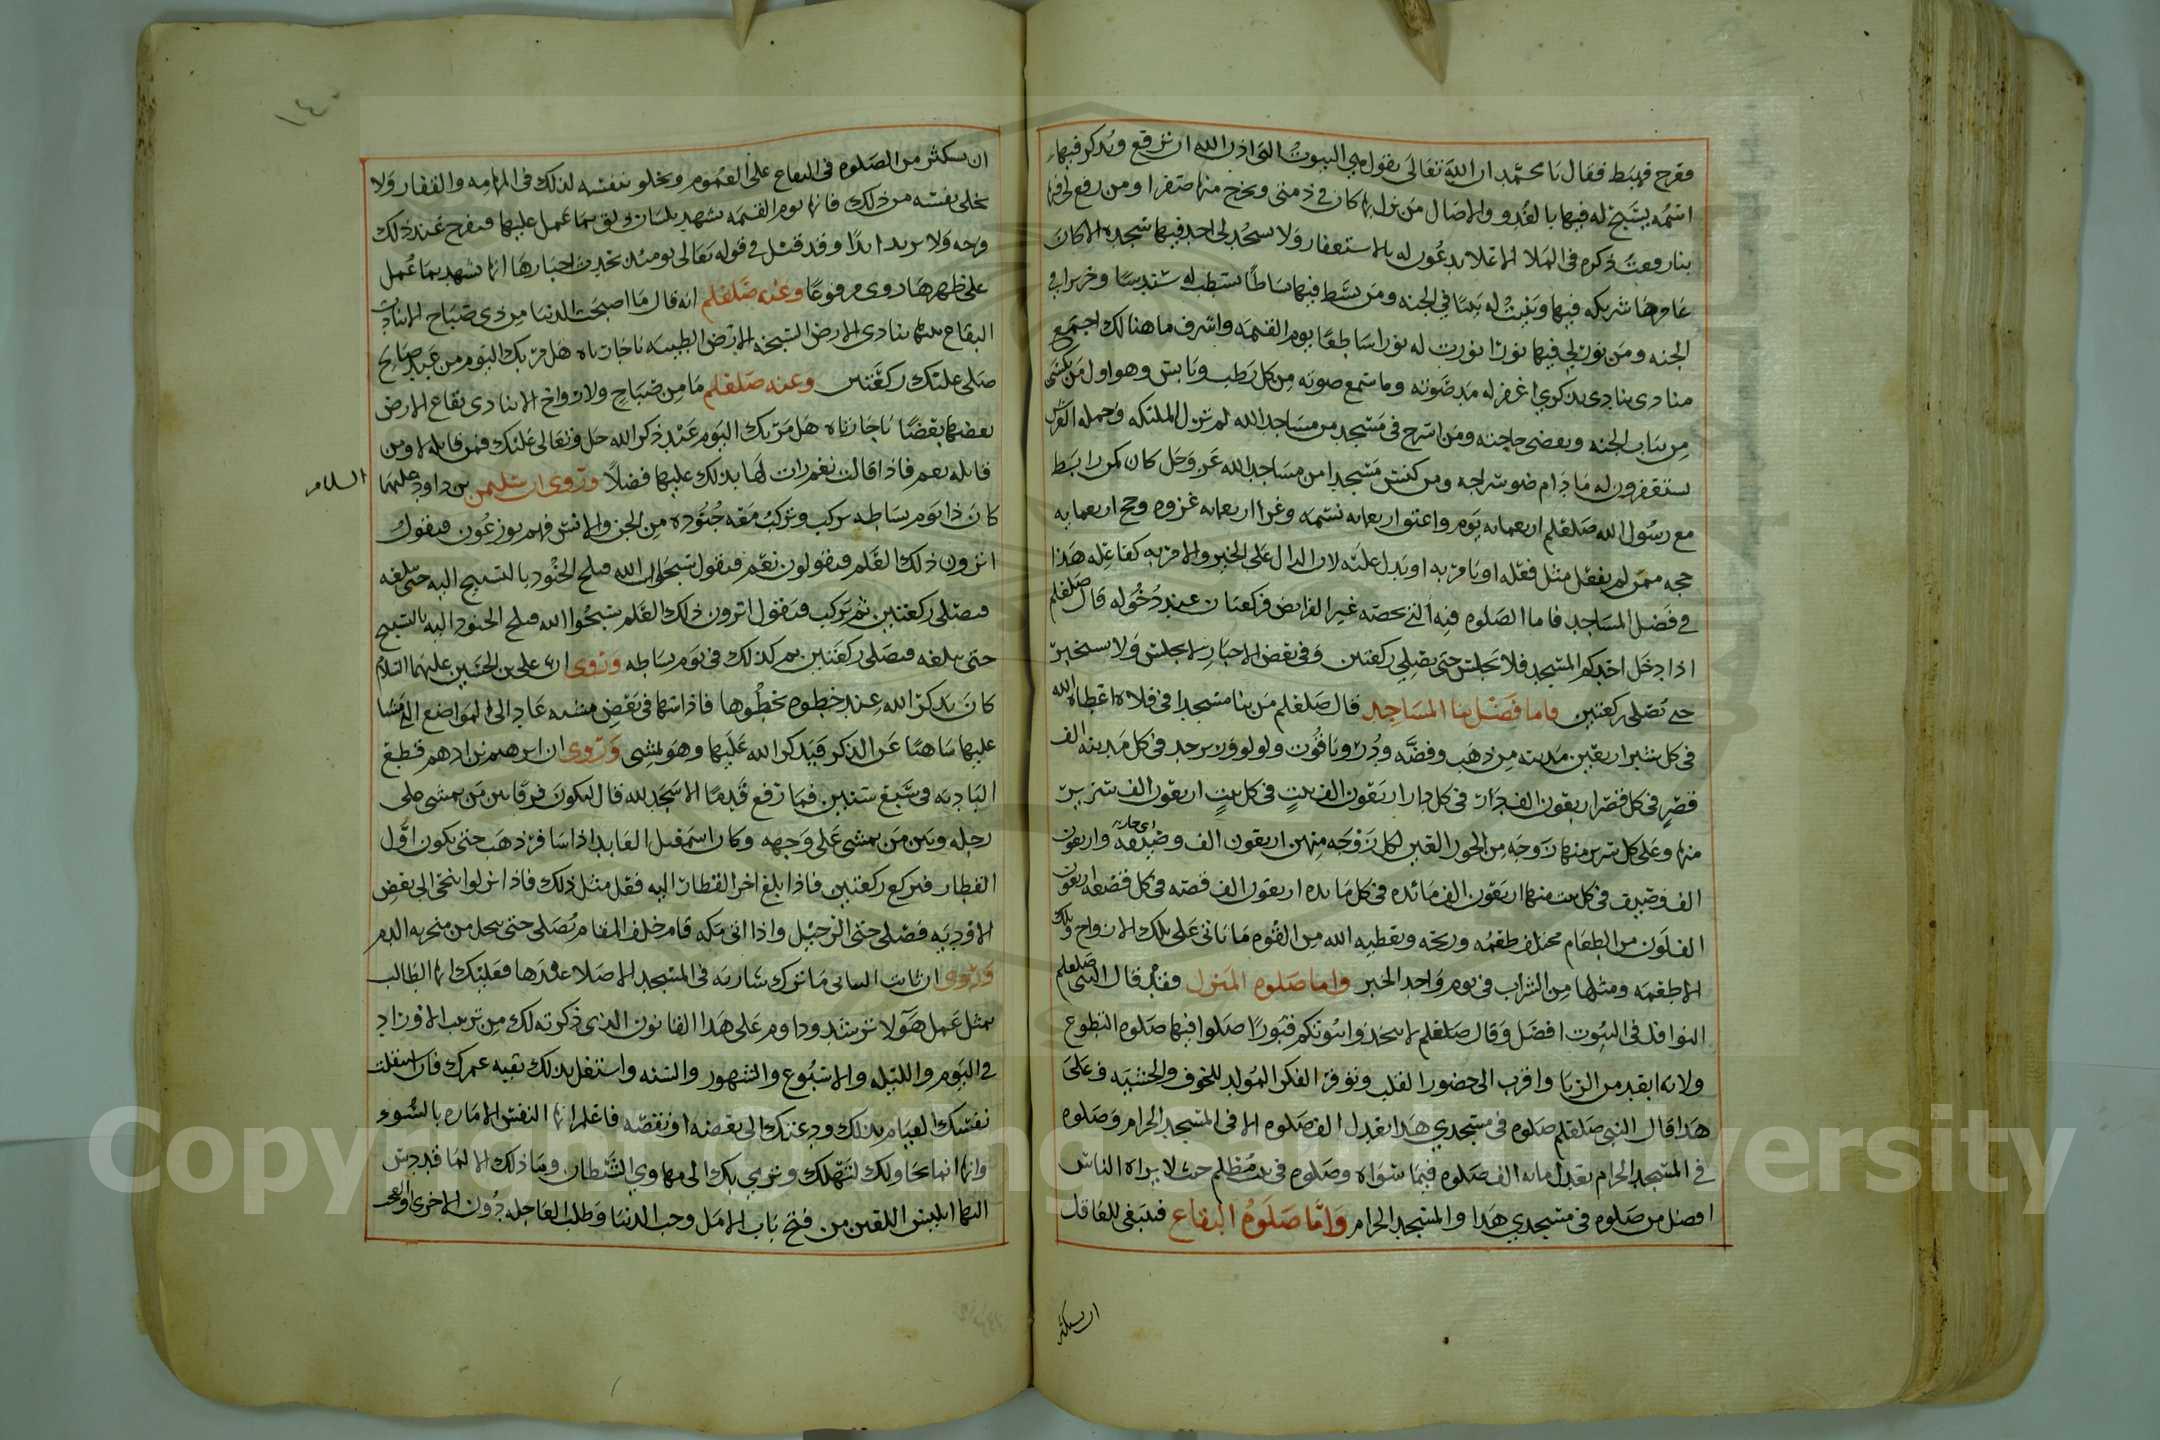 فعرج فهبط فقال يا محمد ان الله تعالى يقول هي البيوت التي اذن الله ان ترفع ويذكر فيها
اسمه يسبح له فيها بالغدو والاصال من نزل بها كان في ذمتي ويخرج منها صفرا ومن رفع لي فيها
بنا رفعت ذكره في الملا الاعلا يدعون له بالاستغفار ولا يسجد لي احد فيها سجده الا كان
عامرها شريكه فيها وبنيت له بيتا في الجنه ومن بسط فيها بساطا بسطت له سندسا وحريرا في
الجنه ومن نور لي فيها نورا نورت له نورا ساطعا يوم القيمه واشرف ما هنالك اجتمع
منادى ينادى بذكري اغفر له مد صوته وما سمع صوته من كل رطب ويابس وهو اول من يكسى
من ثياب الجنه ويقضى حاجته ومن اسرج في مسجد من مساجد الله لم تزل الملئكه وحمله العرش
يستغفرون له ما دام ضو سراجه ومن كنس مسجدا من مساجد الله عز وجل كان كمن رابط
مع رسول الله صلعلم اربعمائه يوم واعتق اربعمائه نسمه وغزا اربعمائه غزوه وحج اربعمايه
حجه ممن لم يفعل مثل فعله او يامر به او يدل عليه لان الدال على الخير والامر به كفاعله هذا
في فضل المساجد فاما الصلوه فيه التي تخصه غير الفرايض فركعتان عند دخوله قال صلعلم
اذا دخل احدكم المسجد فلا يجلس حتى يصلي ركعتين وفي بعض الاخبار لا يجلس ولا يستخبر
حتى يصلى ركعتين فاما فضل بنا المساجد قال صلعلم من بنا مسجدا في فلاه اعطاه الله
في كل شبر اربعين مدينه من ذهب وفضه ودر وياقوت ولولو وزبرجد في كل مدينه الف
قصر في كل قصر اربعون الف دار في كل دار اربعون الف بيت في كل بيت اربعون الف سرير
منها وعلى كل سرير منها زوجه من الحور العين لكل زوجه منهن اربعون الف وصيفه واربعون
الف وصيف في كل بيت منها اربعون الف مائده في كل مايده اربعون الف قصعه في كل قصعه اربعون
الف لون من الطعام مختلف طعمه وريحه ويعطيه الله من القوه ما ياتى على تلك الازواج وتلك
الاطعمه ومثلها من الشراب في يوم واحد الخبر واما صلوه المنزل فقد قال النبى صلعلم
النوافل في البيوت افضل وقال صلعلم لا تتخذوا بيوتكم قبورا صلوا فيها صلوه التطوع
ولانه ابعد من الريا واقرب الى حضور القلب وتوفر الفكر المولد للخوف والخشيه وعلى
هذا قال النبى صلعلم صلوه في مسجدي هذا تعدل الف صلوه الا في المسجد الحرام وصلوه
في المسجد الحرام تعدل مائه الف صلوه فيما سواه وصلوه في بيت مظلم حيث لا يراه الناس
افضل من صلوه في مسجدي هذا والمسجد الحرام واما صلوه البقاع فينبغى للعاقل
ان يستكثر
١٤٠
ان يستكثر من الصلوه في البقاع على العموم ويخلو بنفسه لذلك في المهامه والقفار ولا
يخلى نفسه من ذلك فانها يوم القيمه تشهد بلسان ذلق بما عمل عليها فيفرح عند ذلك
وقد قيل في قوله تعالى يومئذ تحدث اخبارها انها تشهد بما عمل
على ظهرها روى مرفوعا وعنه صلعلم انه قال ما اصبحت الدنيا من ذي صباح الا نادت
البقاع بينها ينادى الارض السبخه الارض الطيبه يا جارتاه هل مر بك اليوم من عبد صالح
صلى عليك ركعتين وعنه صلعلم ما من صباح ولا رواح الا ينادى بقاع الارض
بعضها بعضا يا جارتاه هل مر بك اليوم عبد ذكر الله جل وتعالى عليك فمن قايله لا ومن
قايله نعم فاذا قالت نعم رات لها بذلك عليها فضلا وروى ان سليمن بن داود عليهما
السلام
كان ذا يوم بساطه يركب وتركب معه جنوده من الجن والانس فهم يوزعون فيقول
اترون ذلك العلم فيقولون نعم فيقول سبحوا الله فيلح الجنود بالتسبيح اليه حتى يبلغه
فيصلى ركعتين ثم يركب فيقول اترون ذلك العلم سبحوا الله فيلح الجنود اليه بالتسبيح
حتى يبلغه فيصلى ركعتين ثم كذلك في يوم بساطه وروى ان على بن الحسين عليهما السلام
كان يذكر الله عند خطوه يخطوها فاذا سها في بعض مشيه عاد الى المواضع التي مشا
عليها ساهيا عن الذكر فيذكر الله عليها وهو يمشى وروى ان ابرهيم بن ادهم قطع
الباديه في سبع سنين فما رفع قدما الا سجد لله قال ليكون فرقا بين من يمشى على
رجله وبين من يمشي على وجهه وكان اسمعيل العابد اذا سافر ذهب حتى يكون اول
القطار فيركع ركعتين فاذا بلغ اخر القطار اليه فعل مثل ذلك فاذا نزلوا تنحى الى بعض
الاوديه فصلى حتى الرحيل واذا اتى مكه قام خلف المقام يصلى حتى يسيل من منخريه الدم
وروى ان ثابت البنانى ما ترك ساريه في المسجد الا صلا عندها فعليك ايها الطالب
بمثل عمل هولا ترشد وداوم على هذا القانون الذى ذكرته لك من ترتيب الاوراد
في اليوم والليله والاسبوع والشهور والسنه واستغل بذلك بقيه عمرك فان استثقلت
نفسك القيام بذلك ودعتك الى بعضه او نقصه فاعلم انها النفس الاماره بالسوء
وانها انما تحاولك لتهلك وترمي بك الى مهاوي الشيطان وما ذلك الا لما قد دس
اليها ابليس اللعين من فتح باب الامل وحب الدنيا وطلب العاجله دون الاخرى